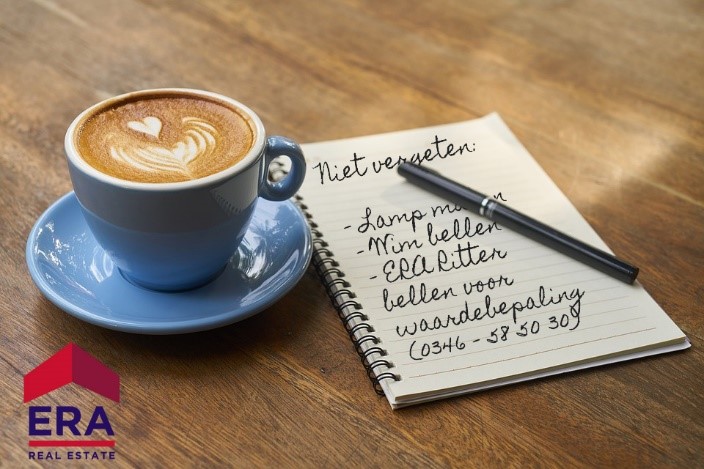 Niet vergeten:
- Lamp
- Wim bellen
- ERA Ritter
bellen voor
waardebepaling
(0346 - 58 50 30)
ERA
REAL ESTATE